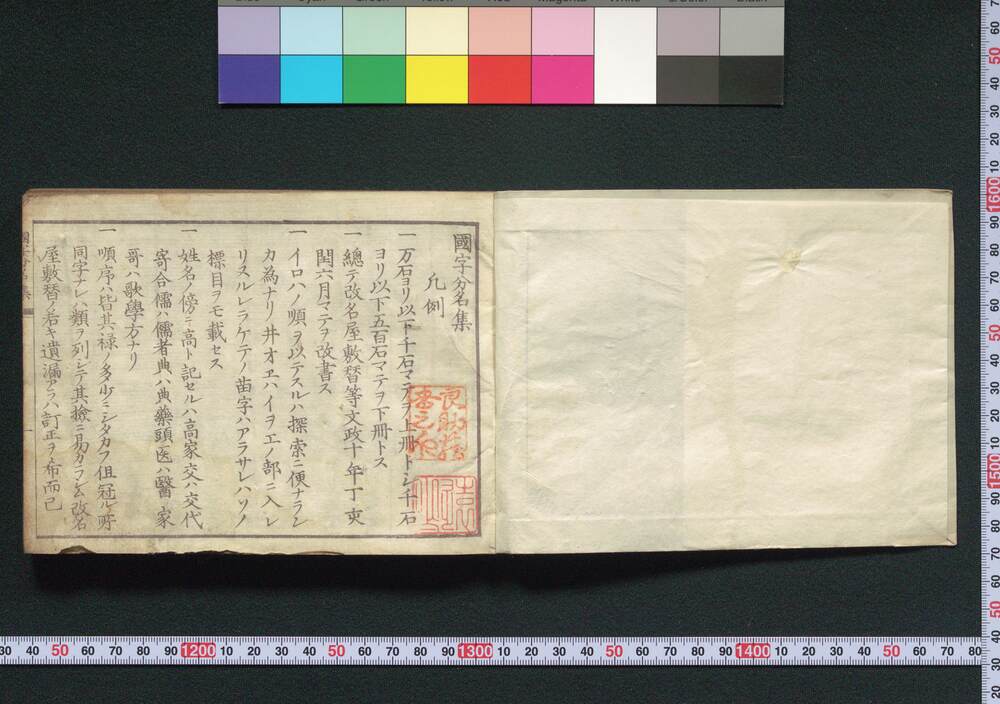 國字分名集
凡例
一 万石ヨリ以下千石マテヲ上冊トシ千石
ヨリ以下五百石マテヲ下冊トス
一 總テ改名屋敷替等文政十年丁亥
閏六月マテヲ改書ス
一 イロハノ順ヲ以テスルハ探索ニ便ナラン
カ為ナリ井オヱハイヲエノ部ニ入レ
リスルレラケテノ苗字ハアラサレハソノ
標目ヲモ載セス
一 姓名ノ傍ニ高ト記セルハ高家交ハ交代
寄合儒ハ儒者典ハ典藥頭医ハ醫家
哥ハ歌學方ナリ
一 順序ハ皆其禄ノ多少ニシタカフ但冠ル所
同字ナレハ類ヲ列シテ其撿ニ易カラシム改名
屋敷替ノ若キ遺漏アラハ訂正ヲ希而已
30 40 50 60 70 80 90 1200 10 20 30 40 50 60 70 80 90 1300 10 20 30 40 50 60 70 80 90 1400 10 20 30 40 50 60 70 80